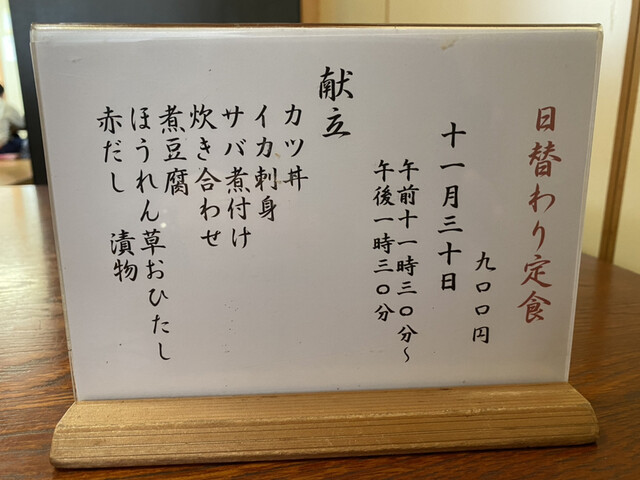 日替わり定食
九〇〇円
十一月三十日
午前十一時三〇分～
午後一時三〇分
献立
カツ丼
イカ刺身
サバ煮付け
炊き合わせ
煮豆腐
ほうれん草おひたし
赤だし　漬物